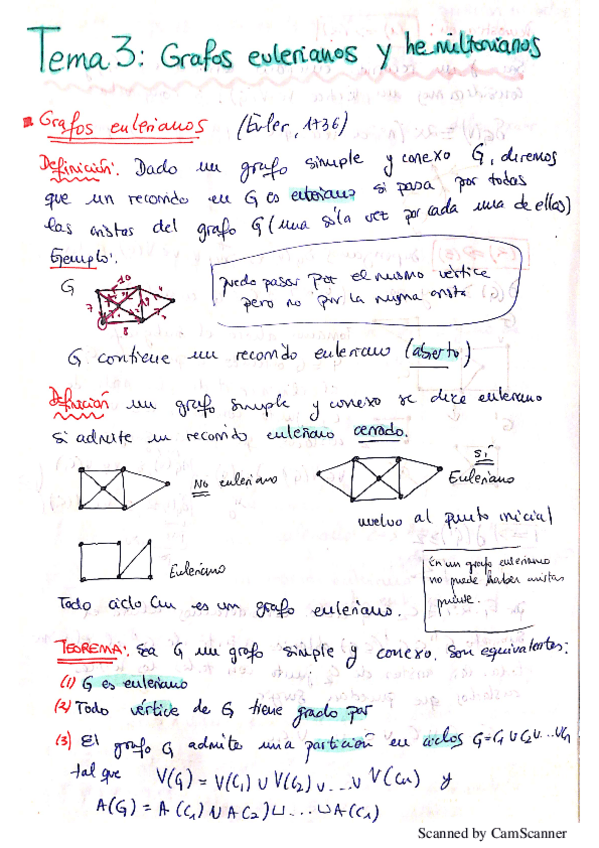 Tema 3: Grafos eulerianos y hamiltonianos
Grafos eulerianos (Euler, 1736)
Definición: Dado un grafo simple y conexo G, diremos
que un recorrido en G es euleriano si pasa por todas
las aristas del grafo G (una sóla vez por cada una de ellas)
Ejemplo:
G
10
7
8
puedo pasar por el mismo vértice
pero no por la misma arista
G contiene un recorrido euleriano (abierto)
Definición un grafo simple y conexo se dice euleriano
si admite un recorrido euleriano cerrado.
No euleriano
sí
Euleriano
vuelvo al punto inicial
Euleriano
En un grafo euleriano
no puede haber aristas
puente.
Todo ciclo Cn es un grafo euleriano.
TEOREMA: Sea G un grafo simple y conexo. Son equivalentes:
(1) G es euleriano
(2) Todo vértice de G tiene grado par
(3) El grafo G admite una partición en ciclos G=C1∪C2∪...∪C1
tal que V(G) = V(C1) ∪ V(C2) ∪ ... ∪ V(Cn) y
A(G) = A(C1) ∪ A C2) ⊔ ... ∪ A(C1)
Scanned by CamScanner